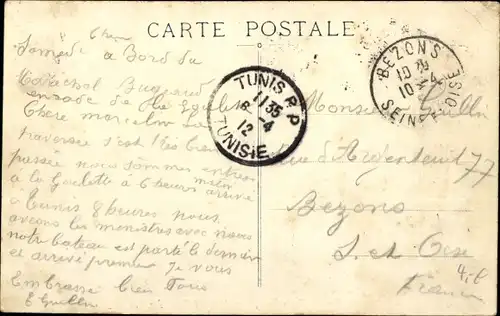 CARTE POSTALE
6 heure
Samedi a Bord du
Maréchal Bugeaud
en rade de la Goulette
Chere marcel
traversée s'est très bien
passée nous sommes
matin
a la Goulette a 6 heures arrivé
a tunis 8 heures nous
avons les ministres avec nous
notre bateau est parti le dernier
et arrivé premier Je vous
Embrasse bien Tous
E Guillin
TUNIS R.P
11 35
8 -4
12
TUNISIE
BEZONS
10
10 -4
SEINE ET OISE
Monsieur Guillin
rue d'Argenteuil 77
Bezons
S. et Oise
France
4,-E